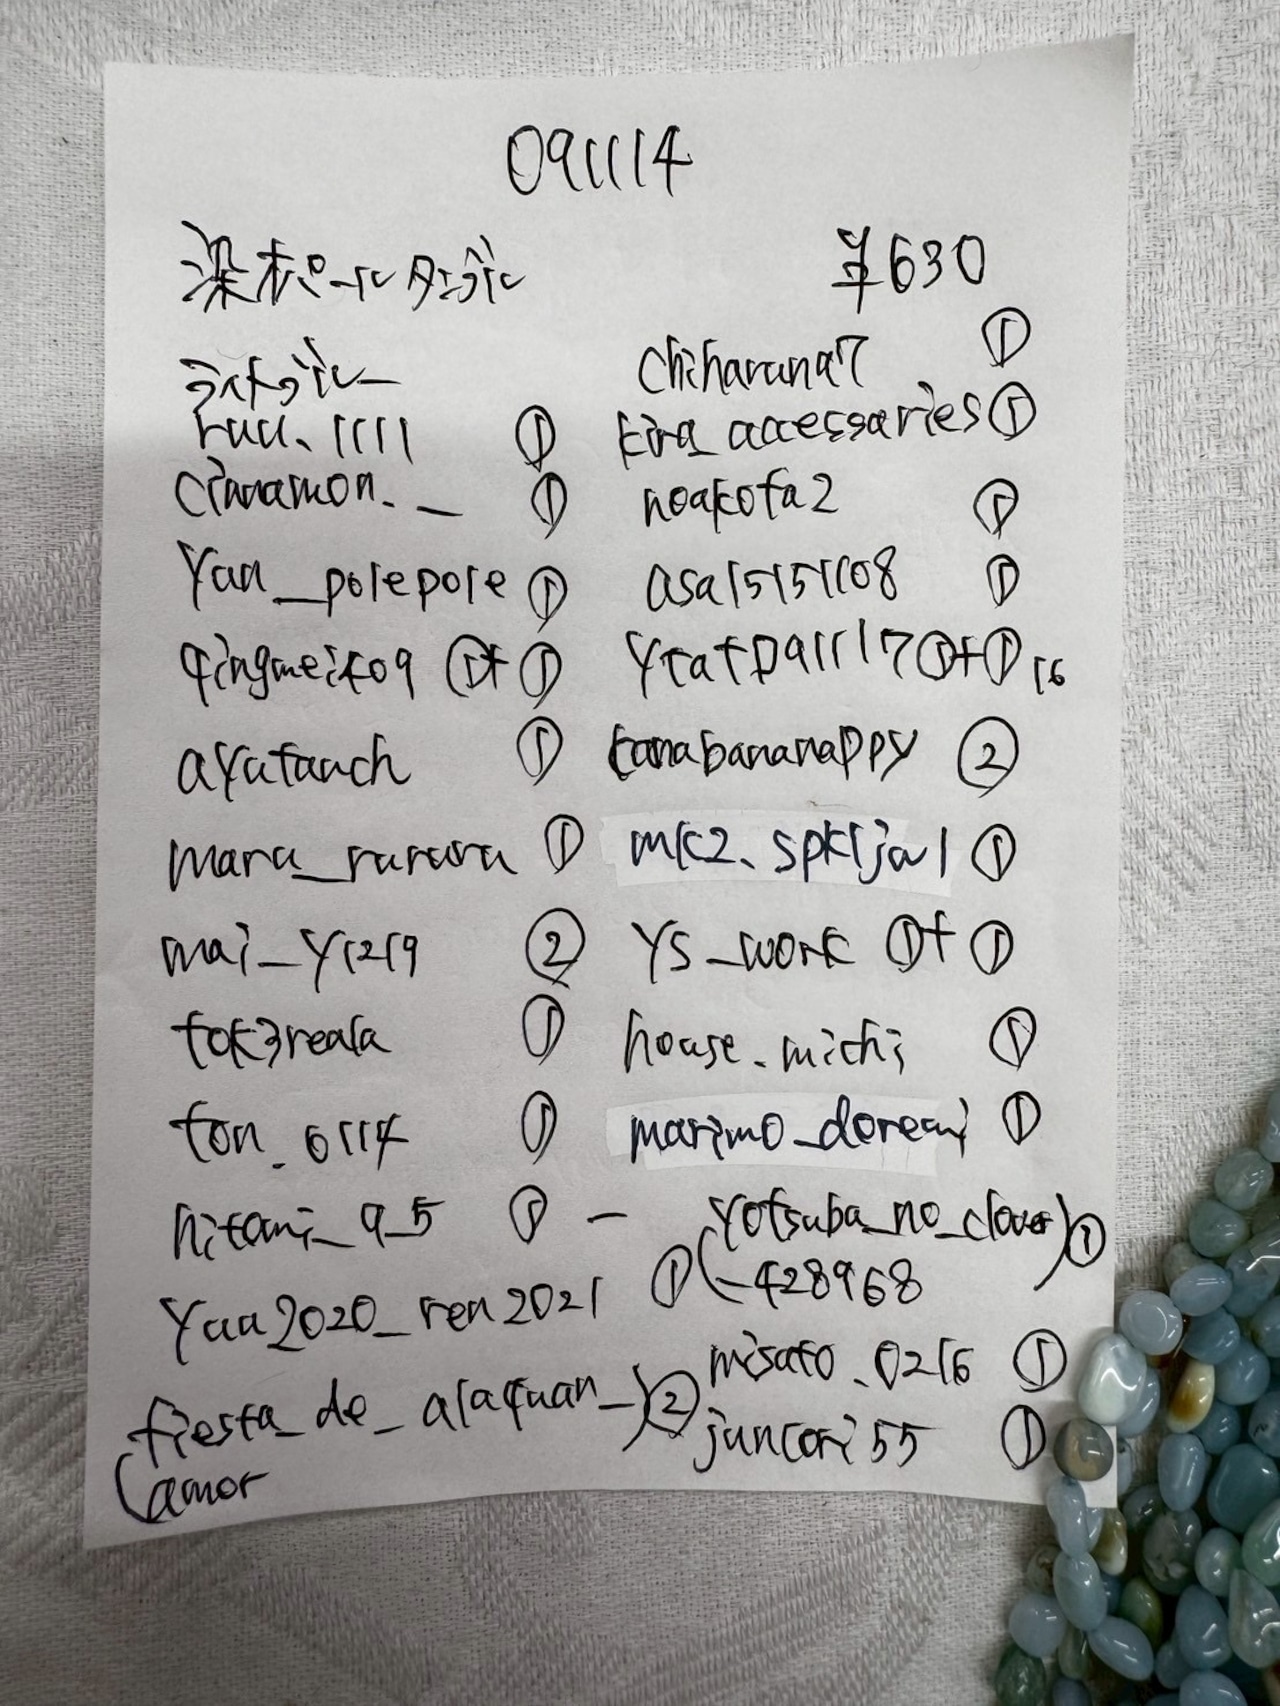 091114
染オパールタンブル ¥630
ライトブルー
ruu.1111 ①
cinnamon._ ①
yan_polepole ①
qingmeiko9 ①+①
ayatanch ①
maru_rurura ①
mai_y1219 ②
tok3reala ①
ton.0114 ①
hitomi_9_5 ① -
yaa2020_ren2021 ①
(fiesta_de_alaquan_) ②
amor
chiharuna7 ①
kira_accessaries ①
noakofa2 ①
asa15151108 ①
ytatp91117 ①+① 16
tanabananappy ②
mk2.spkljal ①
ys_work ①+①
house.michi ①
marimo_doremi ①
(yotsuba_no_clover) ①
-428968
misato.0216 ①
juncori55 ①